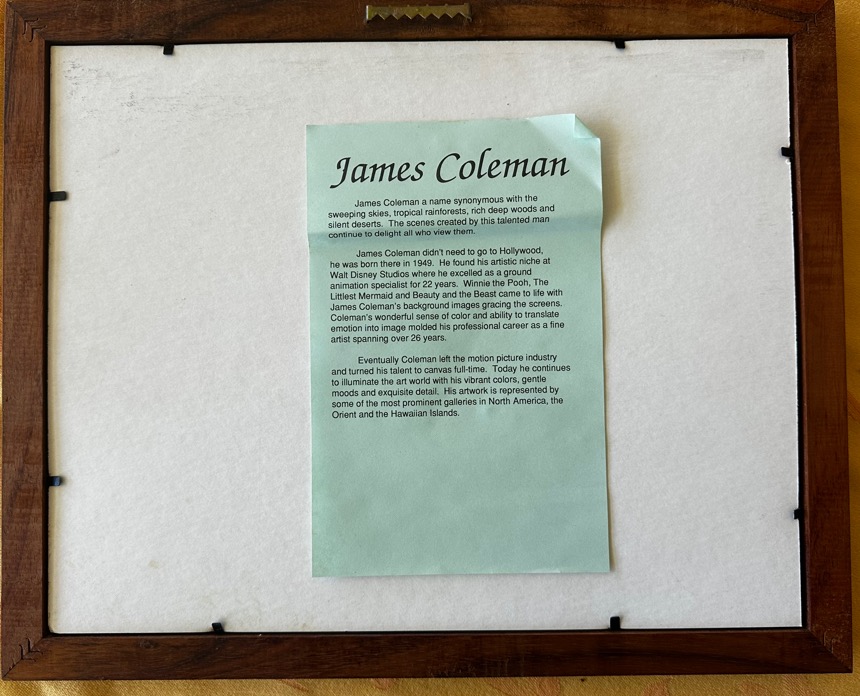 James Coleman
James Coleman a name synonymous with the
sweeping skies, tropical rainforests, rich deep woods and
silent deserts. The scenes created by this talented man
continue to delight all who view them.
James Coleman didn't need to go to Hollywood,
he was born there in 1949. He found his artistic niche at
Walt Disney Studios where he excelled as a ground
animation specialist for 22 years. Winnie the Pooh, The
Littlest Mermaid and Beauty and the Beast came to life with
James Coleman's background images gracing the screens.
Coleman's wonderful sense of color and ability to translate
emotion into image molded his professional career as a fine
artist spanning over 26 years.
Eventually Coleman left the motion picture industry
and turned his talent to canvas full-time. Today he continues
to illuminate the art world with his vibrant colors, gentle
moods and exquisite detail. His artwork is represented by
some of the most prominent galleries in North America, the
Orient and the Hawaiian Islands.